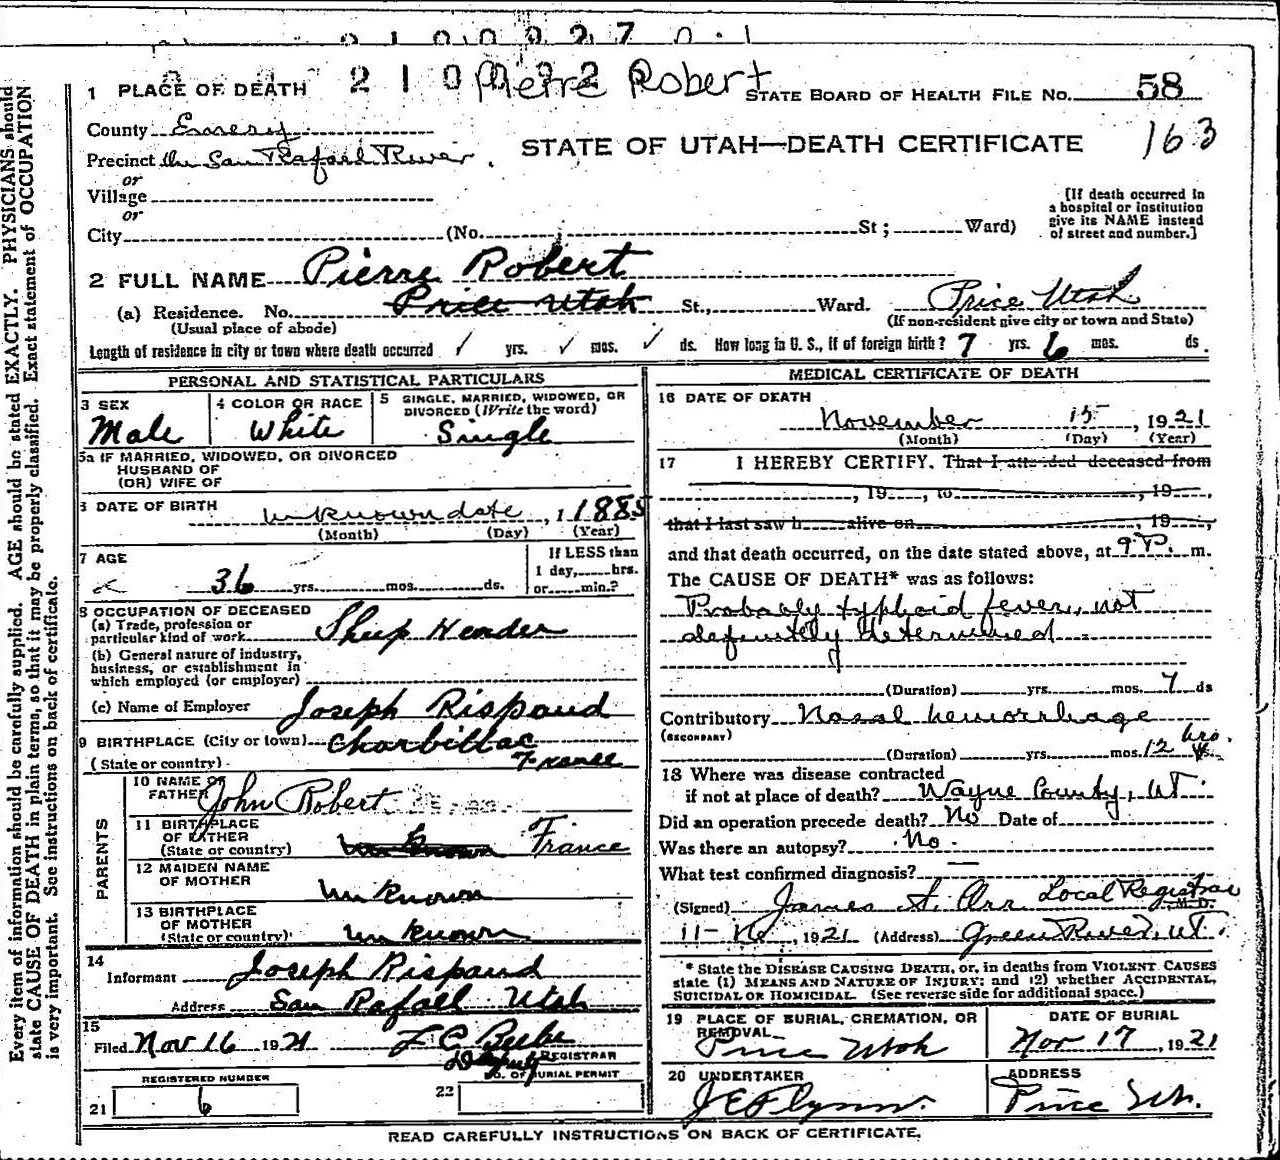 2 1 0 0 2 2 7 0 . 1
2 1 0 0 2 2 6 Pierre Robert
1 PLACE OF DEATH
STATE BOARD OF HEALTH FILE No. 58
County Emery
STATE OF UTAH—DEATH CERTIFICATE 163
Precinct the San Rafael River.
or
Village
or
City (No. St; Ward)
[If death occurred in
a hospital or institution
give its NAME instead
of street and number.]
2 FULL NAME Pierre Robert
(a) Residence. No. Price Utah St., Ward. Price Utah
(Usual place of abode) (If non-resident give city or town and State)
Length of residence in city or town where death occurred ✓ yrs. ✓ mos. ✓ ds. How long in U. S., if of foreign birth? 7 yrs. 6 mos. ds.
PERSONAL AND STATISTICAL PARTICULARS
3 SEX
Male
4 COLOR OR RACE
White
5 SINGLE, MARRIED, WIDOWED, OR
DIVORCED (Write the word)
Single
5a IF MARRIED, WIDOWED, OR DIVORCED
HUSBAND OF
(OR) WIFE OF
6 DATE OF BIRTH
unknown date, 1885
(Month) (Day) (Year)
7 AGE
36 yrs. mos. ds.
If LESS than
1 day, hrs.
or min.?
8 OCCUPATION OF DECEASED
(a) Trade, profession or
particular kind of work Sheep Herder
(b) General nature of industry,
business, or establishment in
which employed (or employer)
(c) Name of Employer Joseph Rispaud
9 BIRTHPLACE (City or town) Charbillac
(State or country) France
PARENTS
10 NAME OF
FATHER John Robert
11 BIRTHPLACE
OF FATHER
(State or country) unknown France
12 MAIDEN NAME
OF MOTHER unknown
13 BIRTHPLACE
OF MOTHER
(State or country) unknown
14
Informant Joseph Rispaud
Address San Rafael Utah
15
Filed Nov 16 1921 L C Beebe
Deputy REGISTRAR
REGISTERED NUMBER
21 6
NO. OF BURIAL PERMIT
22
MEDICAL CERTIFICATE OF DEATH
16 DATE OF DEATH
November 15, 1921
(Month) (Day) (Year)
17 I HEREBY CERTIFY. That I attended deceased from
, 19 , to , 19 ,
that I last saw h alive on , 19 ,
and that death occurred, on the date stated above, at 9 P. m.
The CAUSE OF DEATH* was as follows:
Probably typhoid fever, not
definitely determined
(Duration) yrs. mos. 7 ds
Contributory Nasal hemorrhage
(SECONDARY)
(Duration) yrs. mos. 12 hrs.
18 Where was disease contracted
if not at place of death? Wayne County, UT.
Did an operation precede death? No Date of
Was there an autopsy? No.
What test confirmed diagnosis? —
(Signed) James A. Orr Local Registrar M.D.
11-16, 1921 (Address) Green River, UT.
* State the DISEASE CAUSING DEATH, or, in deaths from VIOLENT CAUSES
state (1) MEANS AND NATURE OF INJURY; and (2) whether ACCIDENTAL,
SUICIDAL OR HOMICIDAL. (See reverse side for additional space.)
19 PLACE OF BURIAL, CREMATION, OR
REMOVAL
Price Utah
DATE OF BURIAL
Nov 17, 1921
20 UNDERTAKER
J E Flynn.
ADDRESS
Price Utah.
READ CAREFULLY INSTRUCTIONS ON BACK OF CERTIFICATE.
Every item of information should be carefully supplied. AGE should be stated EXACTLY. PHYSICIANS should
state CAUSE OF DEATH in plain terms, so that it may be properly classified. Exact statement of OCCUPATION
is very important. See instructions on back of certificate.